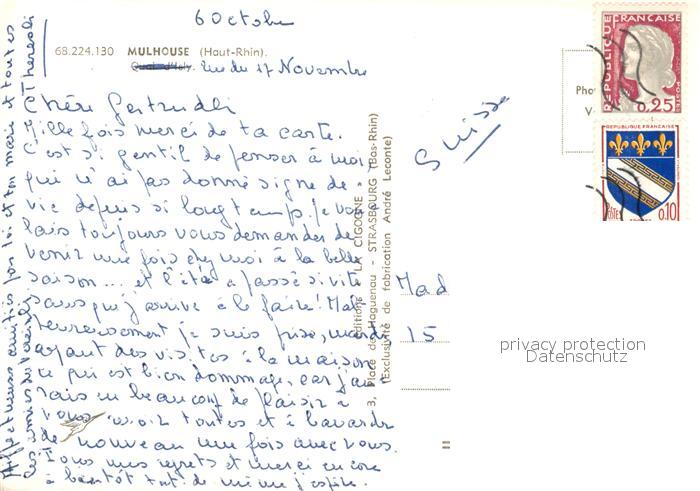 6 Octobre
68.224.130 MULHOUSE (Haut-Rhin).
Rue du 17 Novembre
Chère Gertrudli
Mille fois merci de ta carte.
C'est si gentil de penser à moi
qui n'ai pas donné signe de
vie depuis si longtemps. Je vou
lais toujours vous demander de
venir une fois chez moi à la belle
saison... et l'été a passé si vite
sans que j'arrive à le faire! Mal
heureusement je suis prise, mardi
ayant des visites à la maison
ce qui est bien dommage, car j'au
rais eu beaucoup de plaisir à
vous voir toutes et à bavarder
de nouveau une fois avec vous.
Tous mes regrets et merci encore
à bientôt tout de même j'espère.
Affectueuses amitiés pour toi et ton mari et toutes
les amies du
Theresli
Éditions LA CIGOGNE
3, Place de Haguenau - STRASBOURG (Bas-Rhin)
(Exclusivité de fabrication André Leconte)
Suisse
Mad
15
Pho
V
REPUBLIQUE FRANÇAISE
POSTES
0,25
REPUBLIQUE FRANÇAISE
0,10
privacy protection
Datenschutz